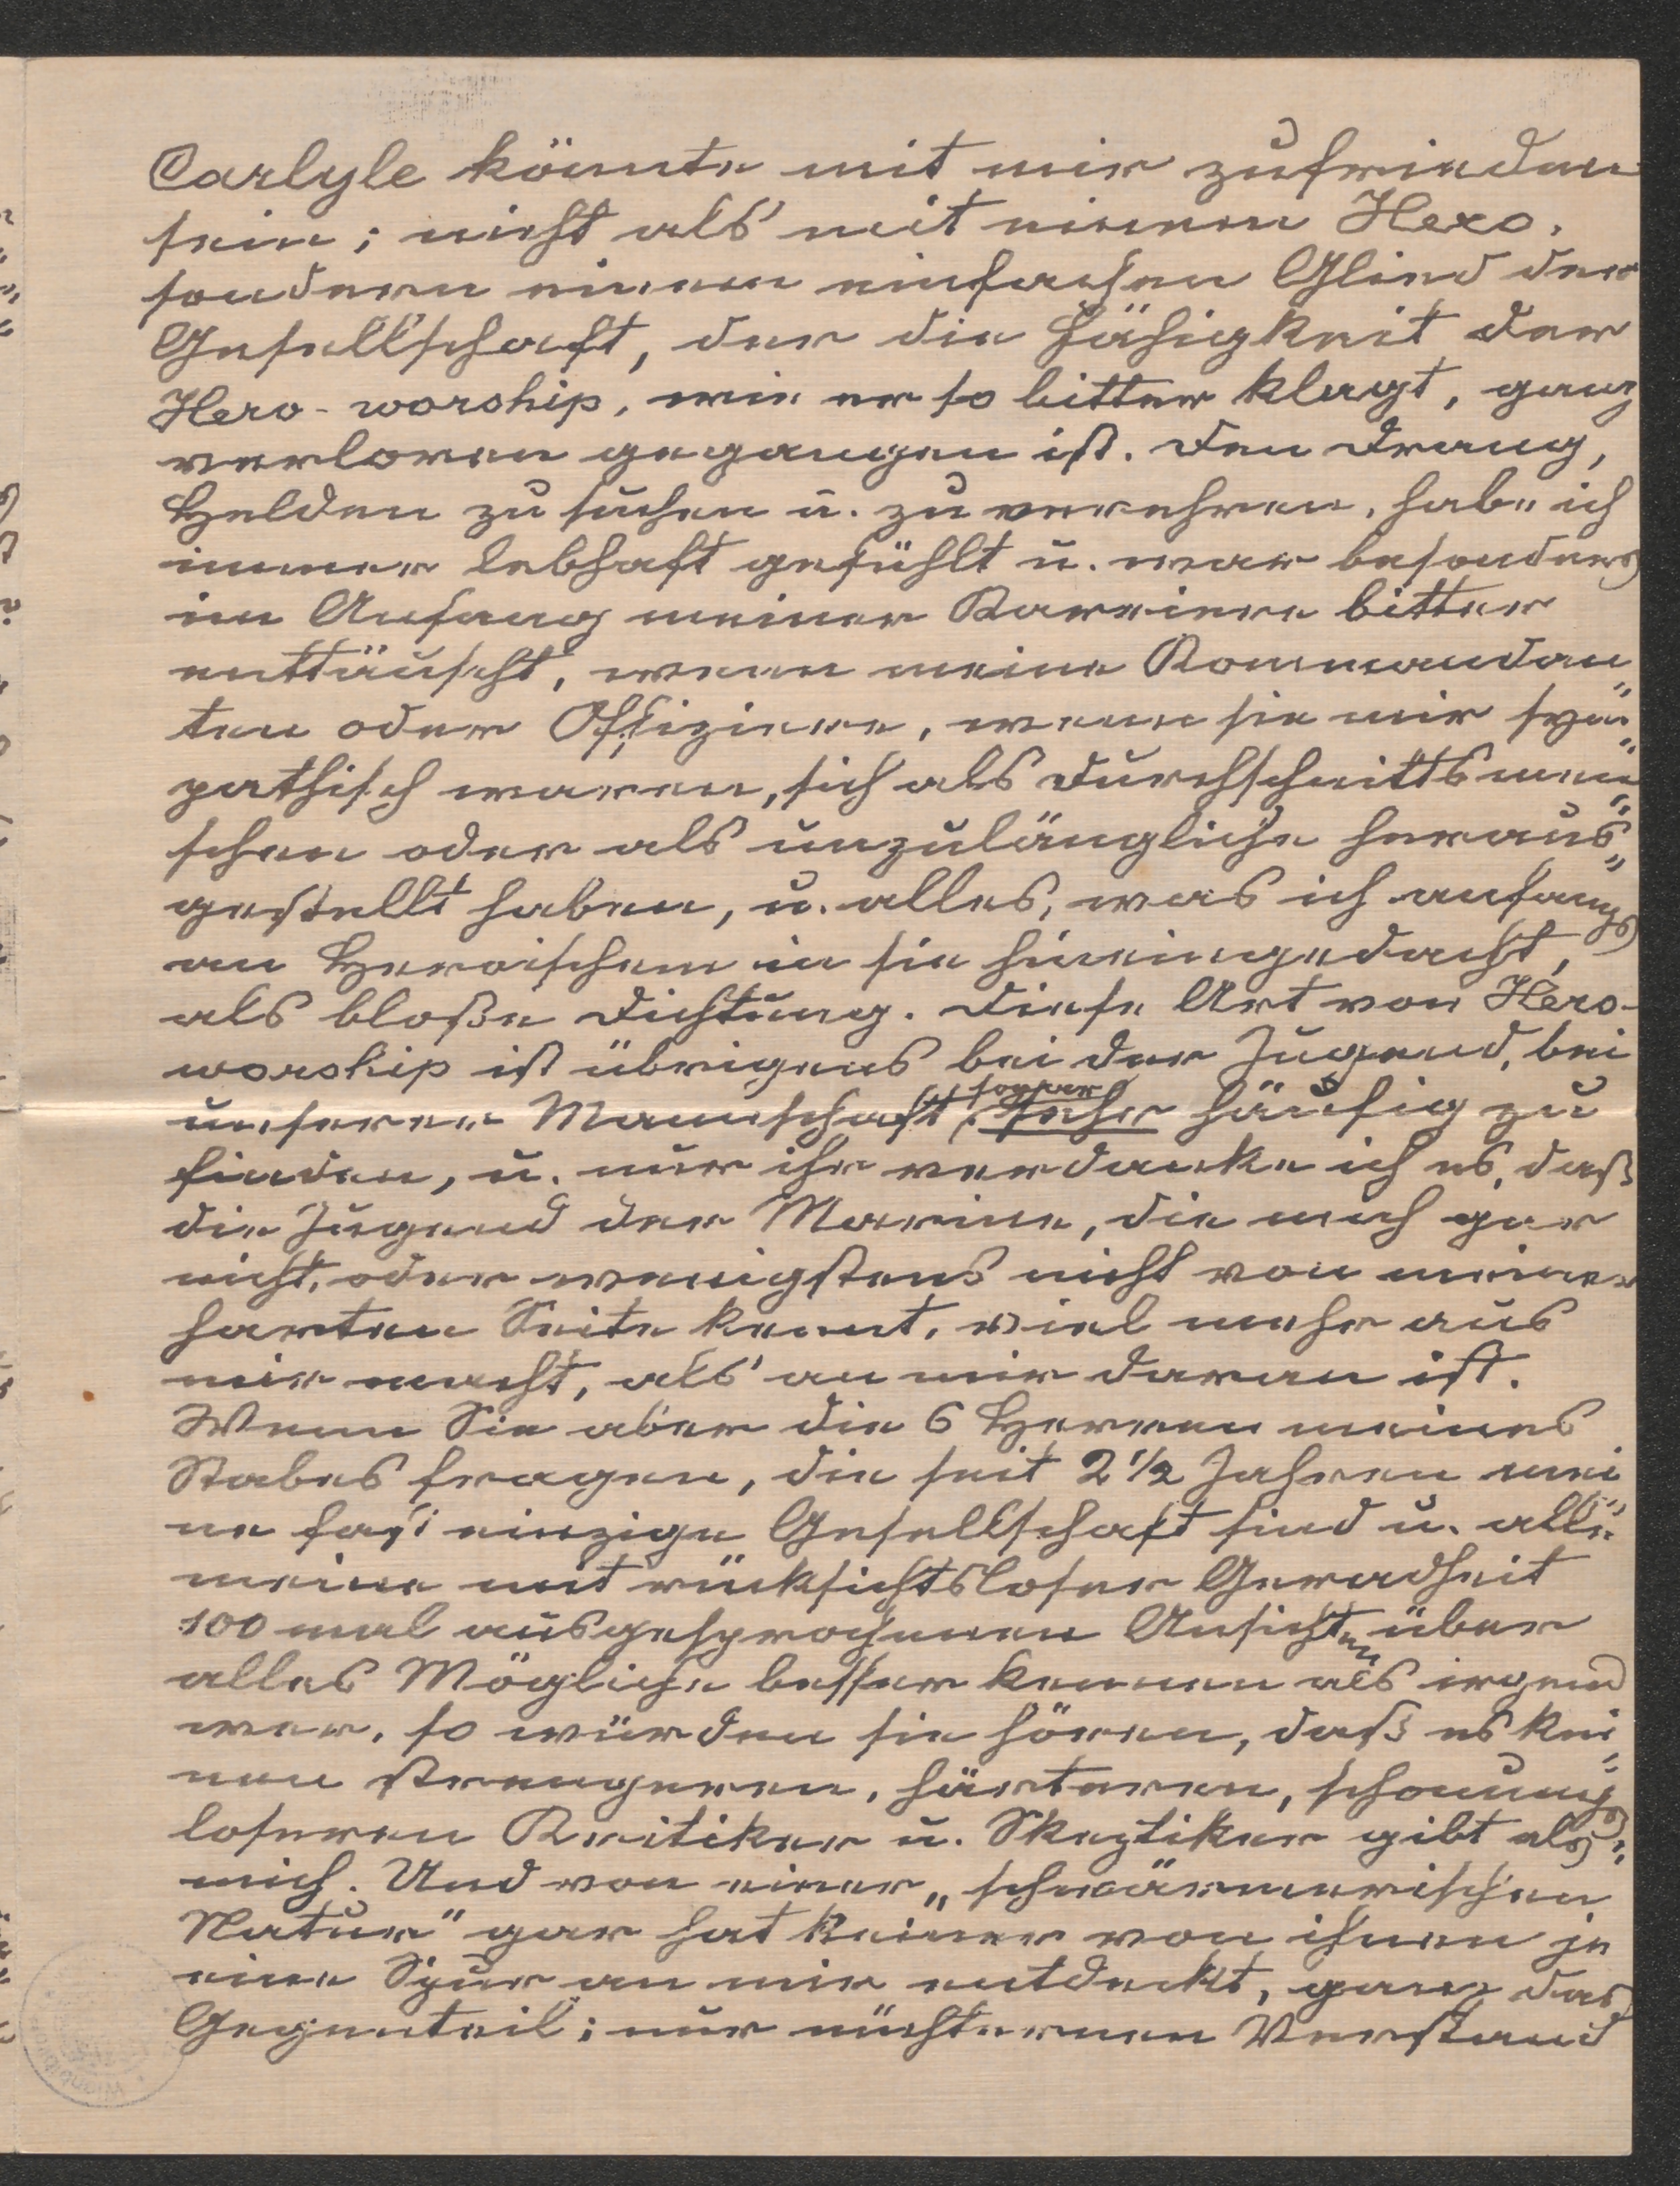 Carlyle könnte mit mir zufrieden
sein; nicht als mit einem Hero,
sondern einem einfachen Glied der
Gesellschaft, der die Fähigkeit der
Hero-worship, wie er so bitter klagt, ganz
verloren gegangen ist. Den Drang,
Helden zu suchen u. zu verehren, habe ich
immer lebhaft gefühlt u. war besonders
im Anfang meiner Karriere bitter
enttäuscht, wenn meine Kommandan„
ten oder Offiziere, wenn sie mir sym„
pathisch waren, sich als Durchschnittsmen„
schen oder als unzulängliche heraus„
gestellt haben, u. alles, was ich anfangs
an Heroischem in sie hineingedacht,
als bloße Dichtung. Diese Art von Hero-
worship ist übrigens bei der Jugend, bei
unserer Mannschaft sogar sehr häufig zu
finden, u. nur ihr verdanke ich es, daß
die Jugend der Marine, die mich gar
nicht, oder wenigstens nicht von meiner
harten Seite kennt, viel mehr aus
mir macht, als an mir daran ist.
Wenn Sie aber die 6 Herren meines
Stabes fragen, die seit 2 1/2 Jahren mei„
ne fast einzige Gesellschaft sind u. alle
meine mit rücksichtsloser Geradheit
100 mal ausgesprochenen Ansichten über
alles Mögliche besser kennen als irgend
wer, so würden sie hören, daß es kei„
nen strengeren, härteren, schonungs„
loseren Kritiker u. Skeptiker gibt als
mich. Und von einer „schwärmerischen
Natur" gar hat keiner von ihnen je
eine Spur an mir entdeckt, ganz das
Gegenteil; nur nüchternen Verstand